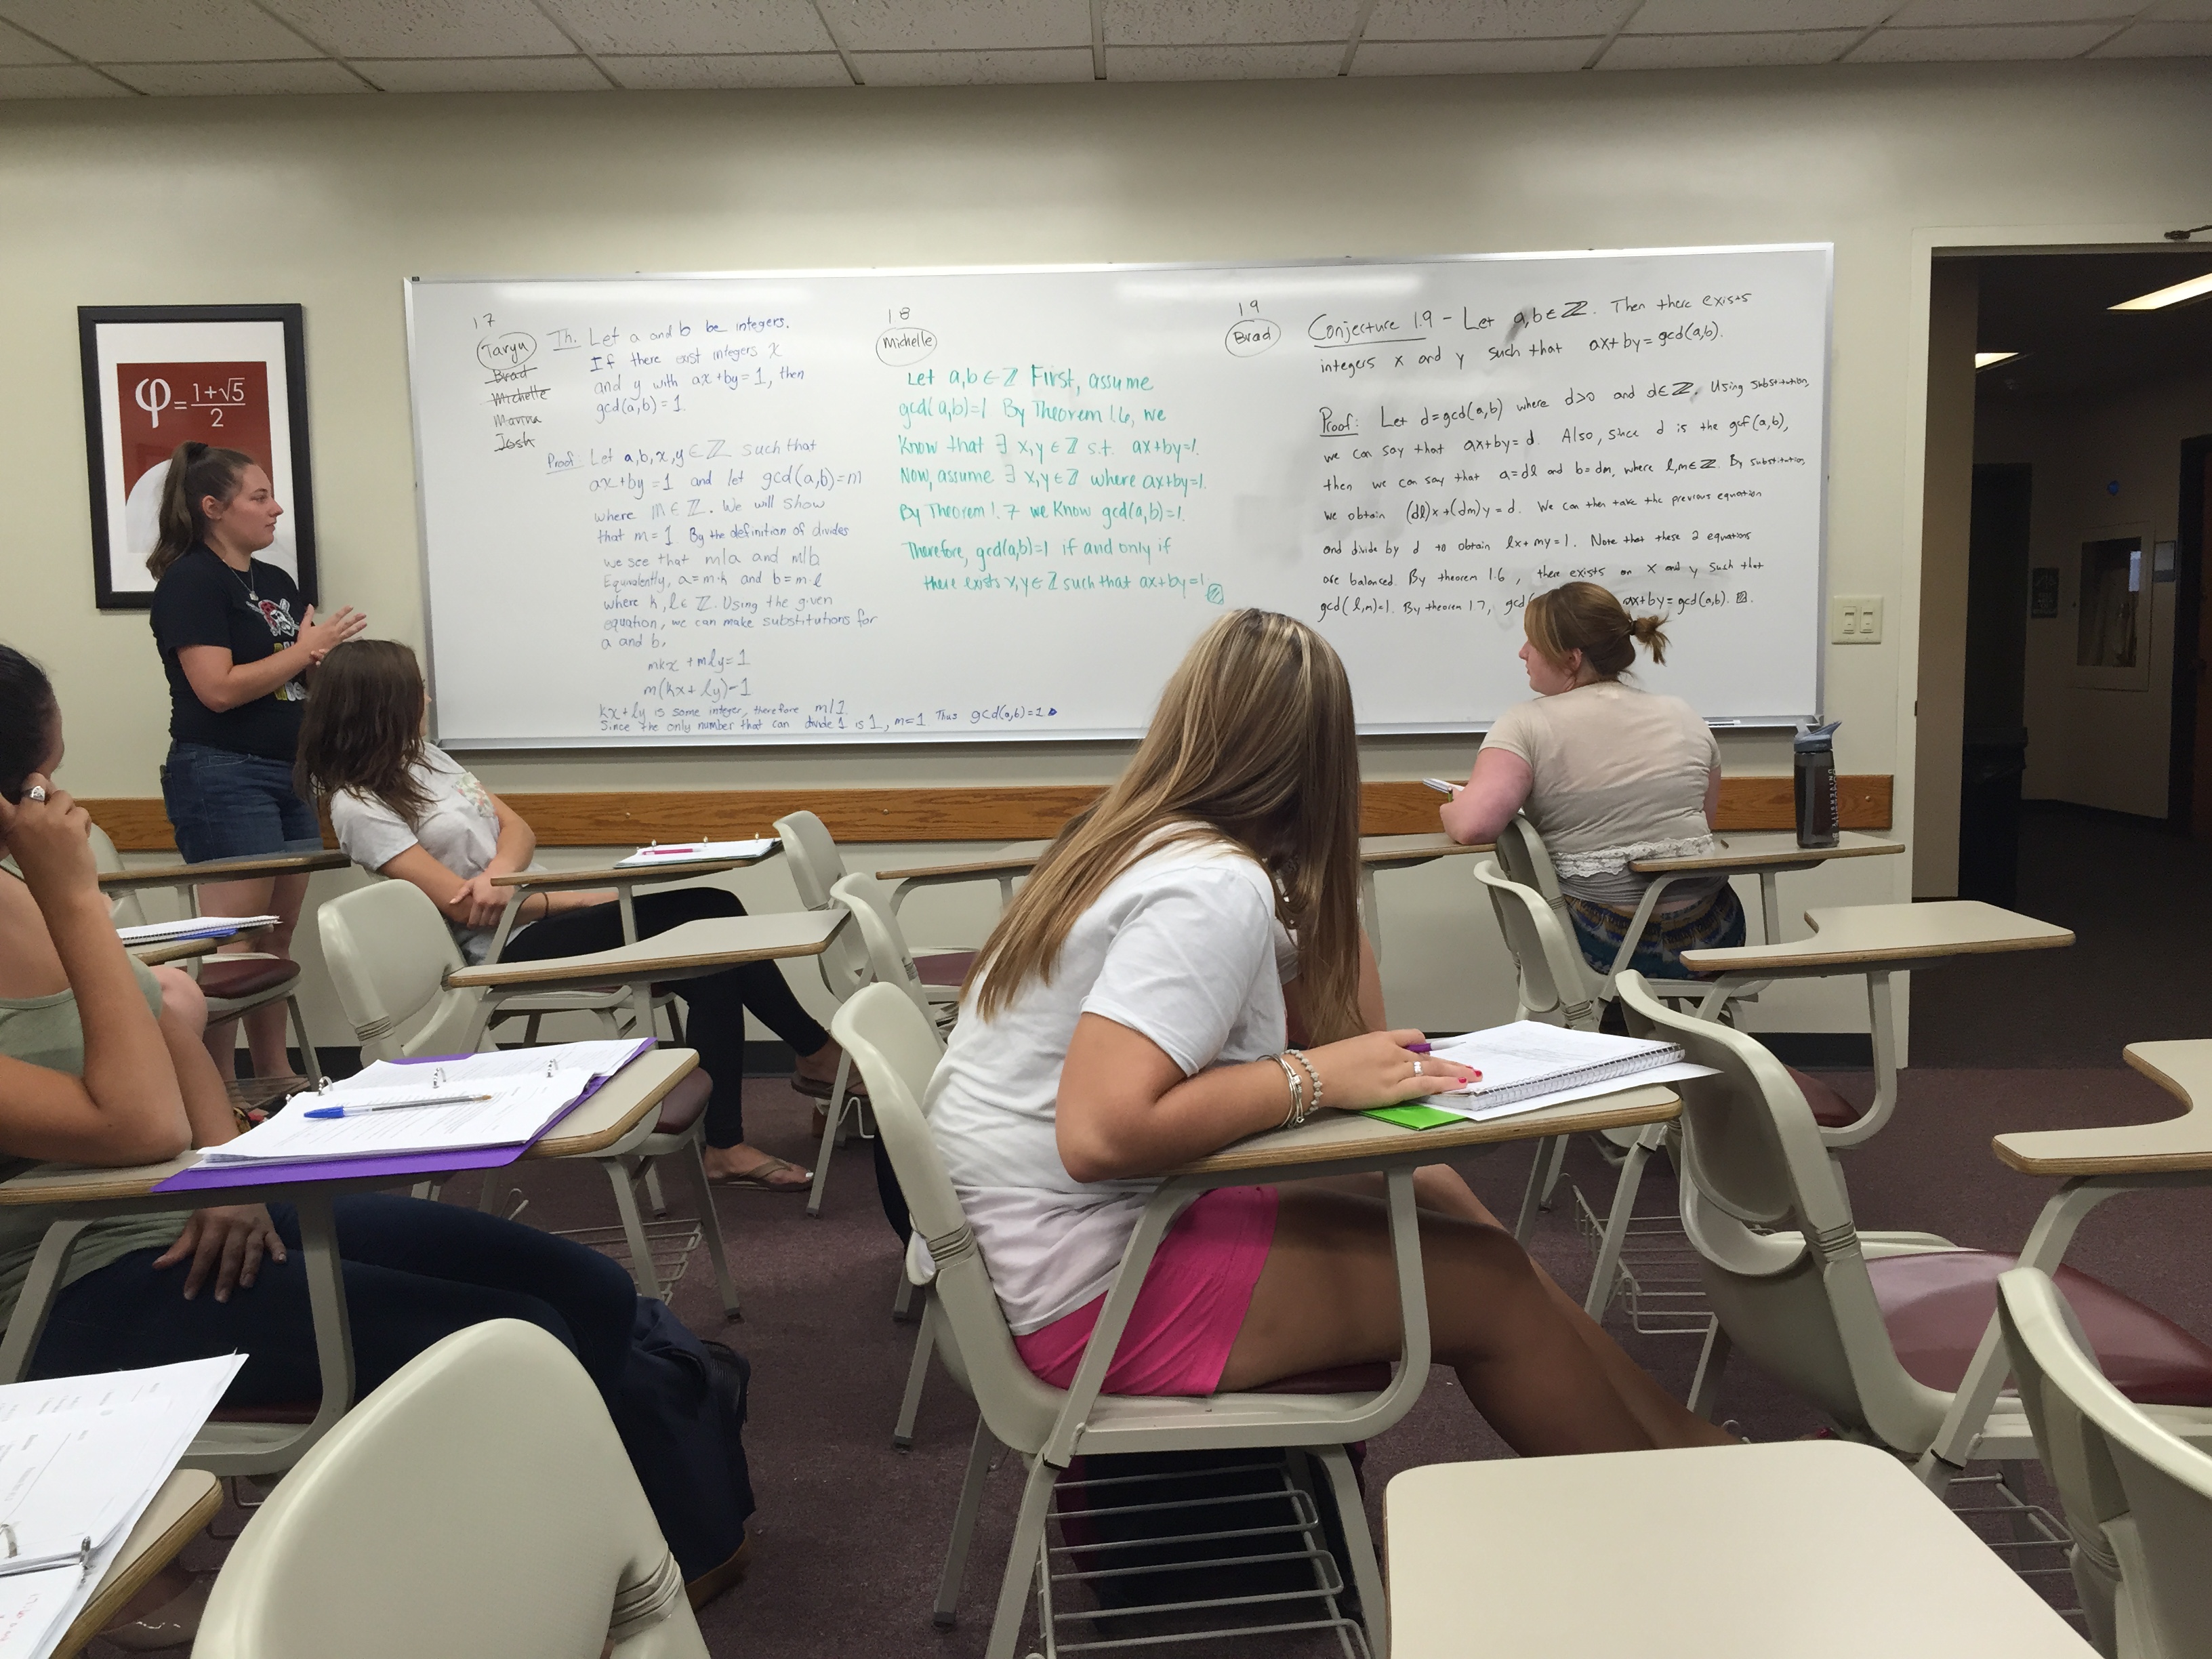 φ = 1+√5
2
17
Taryn
Brad
Michelle
Marina
Josh
Th. Let a and b be integers.
If there exist integers x
and y with ax+by=1, then
gcd(a,b)=1.
Proof: Let a,b,x,y ∈ ℤ such that
ax+by=1 and let gcd(a,b)=m
where m ∈ ℤ. We will show
that m=1. By the definition of divides
we see that m|a and m|b
Equivalently, a=m·k and b=m·l
where k,l ∈ ℤ. Using the given
equation, we can make substitutions for
a and b.
mkx + mly=1
m(kx+ly)=1
kx+ly is some integer, therefore m|1.
Since the only number that can divide 1 is 1, m=1 Thus gcd(a,b)=1
18
Michelle
Let a,b ∈ ℤ First, assume
gcd(a,b)=1 By Theorem 1.6, we
know that ∃ x,y ∈ ℤ s.t. ax+by=1.
Now, assume ∃ x,y ∈ ℤ where ax+by=1.
By Theorem 1.7 we know gcd(a,b)=1.
Therefore, gcd(a,b)=1 if and only if
there exists x,y ∈ ℤ such that ax+by=1
19
Brad
Conjecture 1.9 - Let a,b ∈ ℤ. Then there exists
integers x and y such that ax+by=gcd(a,b).
Proof: Let d=gcd(a,b) where d>0 and d∈ℤ. Using substitution,
we can say that ax+by=d. Also, since d is the gcf(a,b),
then we can say that a=dl and b=dm, where l,m∈ℤ. By substitution,
we obtain (dl)x+(dm)y=d. We can then take the previous equation
and divide by d to obtain lx+my=1. Note that these 2 equations
are balanced. By theorem 1.6, there exists an x and y such that
gcd(l,m)=1. By theorem 1.7, gcd( ax+by=gcd(a,b).